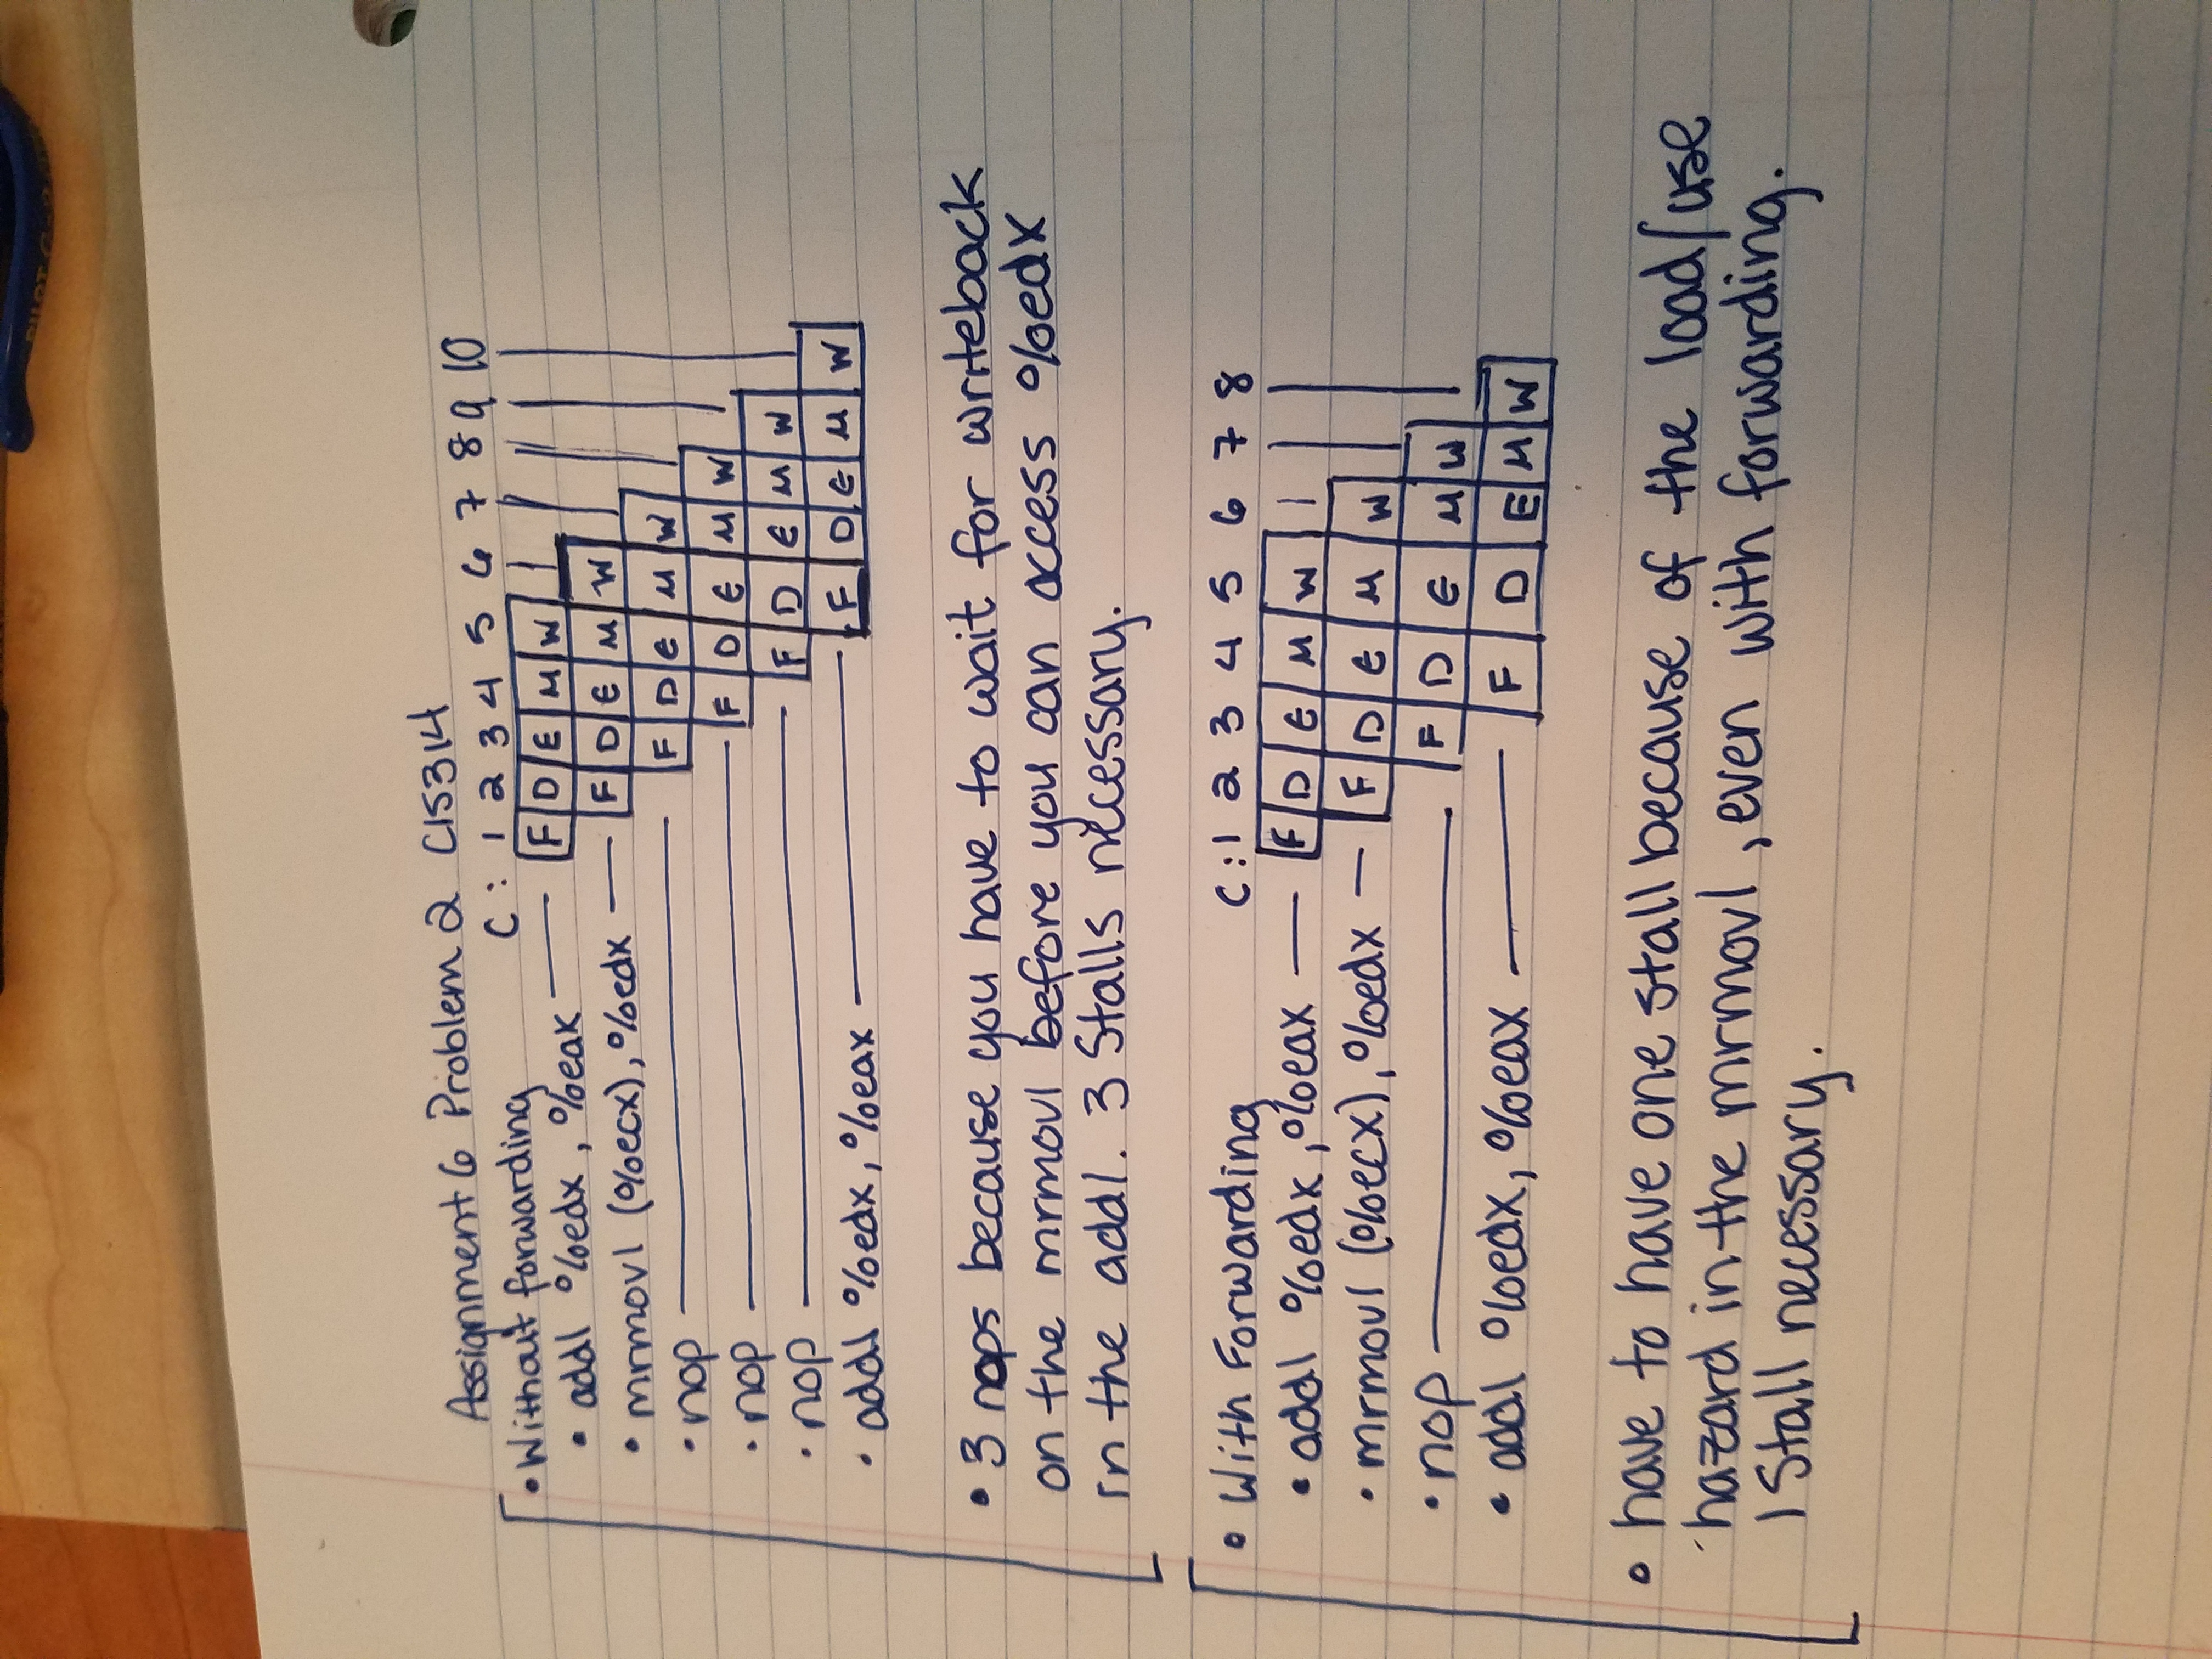 Assignment 6 Problem 2 CIS314
C: 1 2 3 4 5 6 7 8 9 10
• Without forwarding
• addl %edx, %eax F D E M W
• mrmovl (%ecx), %edx F D E M W
• nop F D E M W
• nop F D E M W
• nop F D E M W
• addl %edx, %eax F D E M W
• 3 nops because you have to wait for writeback
on the mrmovl before you can access %edx
in the addl. 3 Stalls necessary.
• With Forwarding C: 1 2 3 4 5 6 7 8
• addl %edx, %eax F D E M W
• mrmovl (%ecx), %edx F D E M W
• nop F D E M W
• addl %edx, %eax F D E M W
• have to have one stall because of the load/use
hazard in the mrmovl, even with forwarding.
1 Stall necessary.